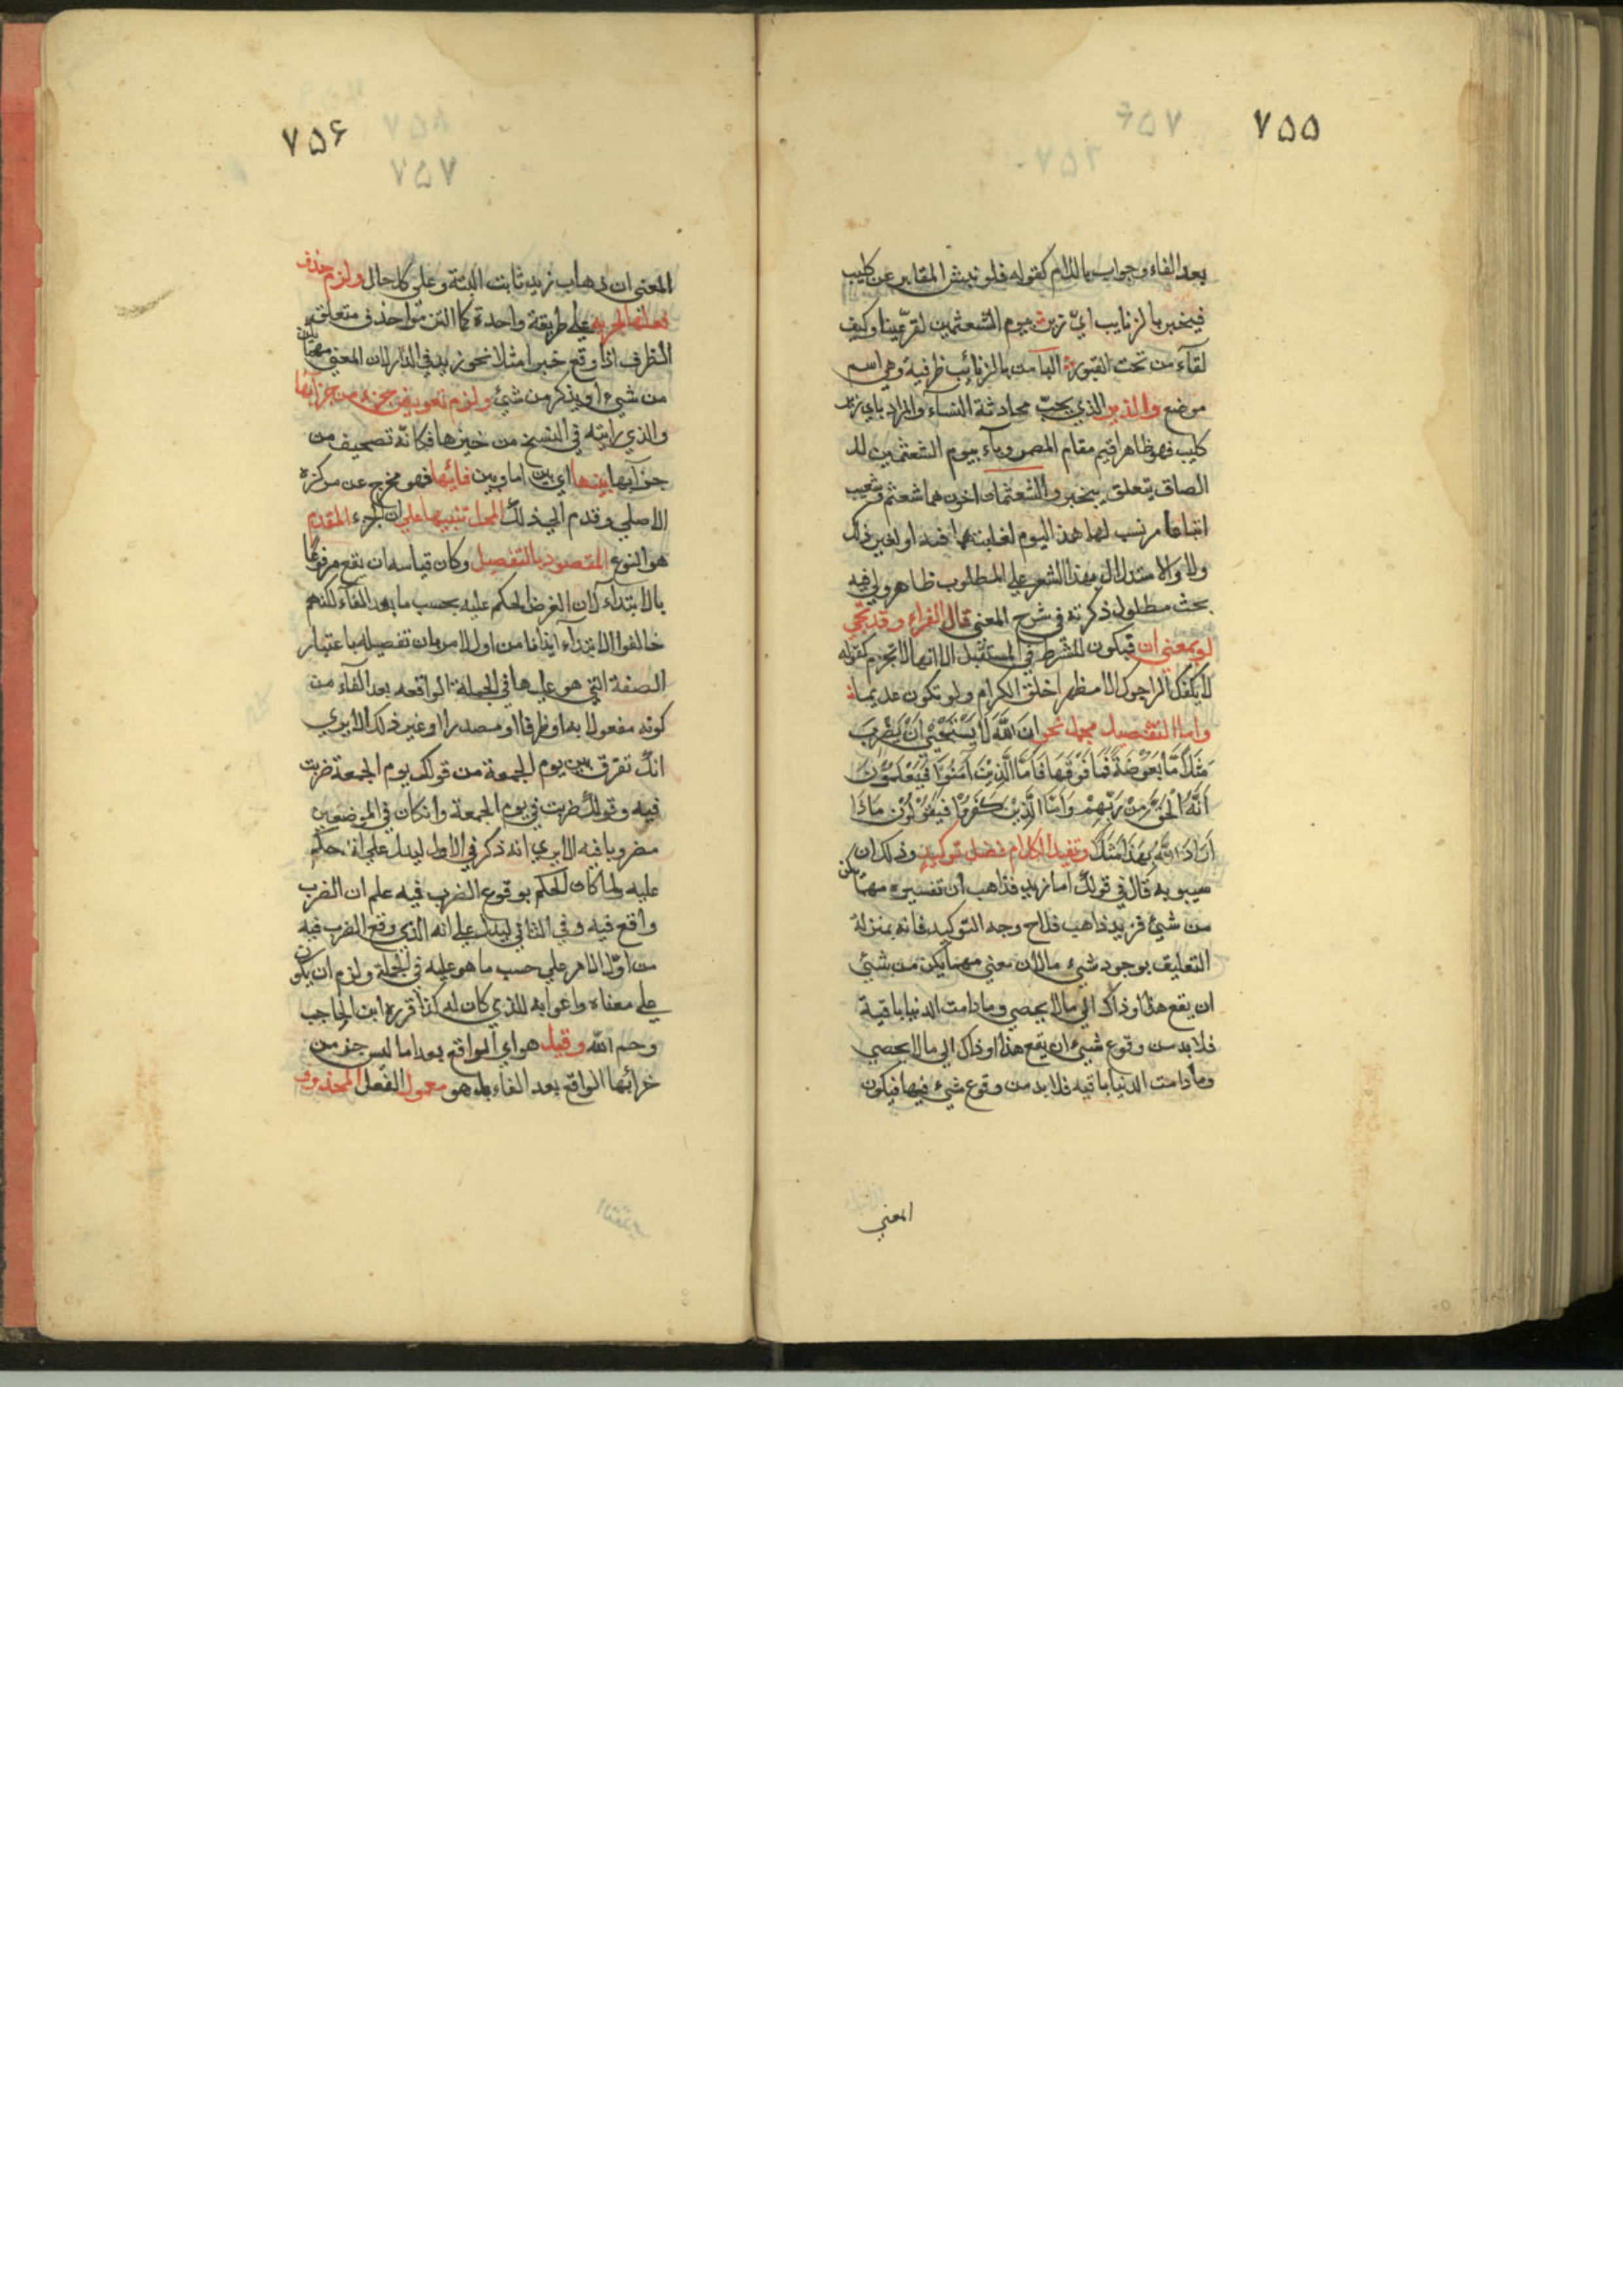 ٧٥٥
بعد الفاء وجواب باللام كقوله فلو نبش المقابر عن كليب
فيخبر بالزنايب اىّ زير بيوم الشعثمين لقرّ عينا وكيف
لقآء من تحت القبور البآ من بالزنائب ظرفية وهى اسم
موضع والذير الذي يحبّ محادثة النساء والمراد باي زير
كليب فهو ظاهر اقيم مقام المضمر وبآء بيوم الشعثمين لل
الصاق يتعلق بيخبر والشعثمان اخون هما شعثم وشعيب
ابنا مرنسب لهما هذا اليوم
ولو والاستدلال بهذا الشعر علي المطلوب ظاهر ولي فيه
بحث مطول ذكرته في شرح المغني قال الفراء وقد تجي
لو بمعني ان فيكون للشرط في المستقبل الا انها لا تجزم كقوله
لا يلفك الراجوك الا مظهرا خلق الكرام ولو تكون عديما
واما لتفصيل مجمل نحو ان الله لا يستحيي ان يضرب
مثلا مّا بعوضة فما فوقها فاما الذين آمنوا فيعلمون
انه الحق من ربهم واما الذين كفروا فيقولون ماذا
اراد الله بهذا مثلا وتفيد الكلام فضل توكيد وذلك ان
سيبويه قال في قولك اما زيد فذاهب ان تفسيره مهما يكن
من شئ فزيد ذاهب فلاح وجه التوكيد فانه بمنزلة
التعليق بوجود شيء ما لان معني مهما يكن من شئي
ان يقع هذا او ذاك الي ما لا يحصي وما دامت الدنيا باقية
فلا بد من وقوع شيئ ان يقع هذا او ذاك الي ما لا يحصي
وما دامت الدنيا باقيه فلا بد من وقوع شيء فيها فيكون
المعني
٧٥۶
٧٥٧
المعني ان ذهاب زيد ثابت البتة وعلي كل حال ولزم حذف
فعلها علي طريقة واحدة كما التزموا حذف متعلق
الظرف اذا وقع خبرا مثلا نحو زيد في الدار لان المعني مهما يكن
من شيء او يذكر من شئ ولزم تعويض جزء من جزآئها
والذي رايته في النسخ من خبرها فكانّه تصحيف من
جزآيها بينها اي بين اما وبين فائها فهو مخرج عن مركزه
الاصلي وقدم الي ذلك المحل تنبيها علي ان الجزء المقدم
هو النوع المقصود بالتفصيل وكان قياسه ان يقع مرفوعا
بالابتداء لان الغرض الحكم عليه بحسب ما بعد الفآء لكنهم
خالفوا الابتدآء ايذانا من اول الامر بان تفصيله باعتبار
الصفة التي هو عليها في الجملة الواقعه بعد الفآء من
كونه مفعولا به او ظرفا او مصدرا او غير ذلك الا يري
انك تفرق بين يوم الجمعة من قولك يوم الجمعة ضربت
فيه وقولك ضربت في يوم الجمعة وانكان في الموضعين
مضروبا فيه الا يري انه ذكر في الاول ليدل علي انه حكم
عليه ولما كان الحكم بوقوع الضرب فيه علم ان الضرب
واقع فيه وفي الثاني ليدل علي انه الذي وقع الضرب فيه
من اوّل الامر علي حسب ما هو عليه في الجملة ولزم ان يكون
علي معناه واعرابه الذي كان له كذا قرره ابن الحاجب
رحم الله وقيل هو اي الواقع بعد اما ليس جزء من
جزائها الواقع بعد الفاء بل هو معمول الفعل المحذوف